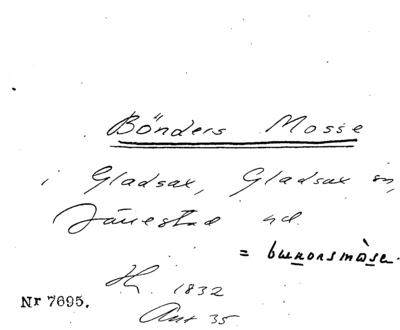 Bönders Mosse
i Gladsax, Gladsax sn,
Järrestad hd.
= bunorsmåse.
H. 1832
Ant 35
Nr 7695.